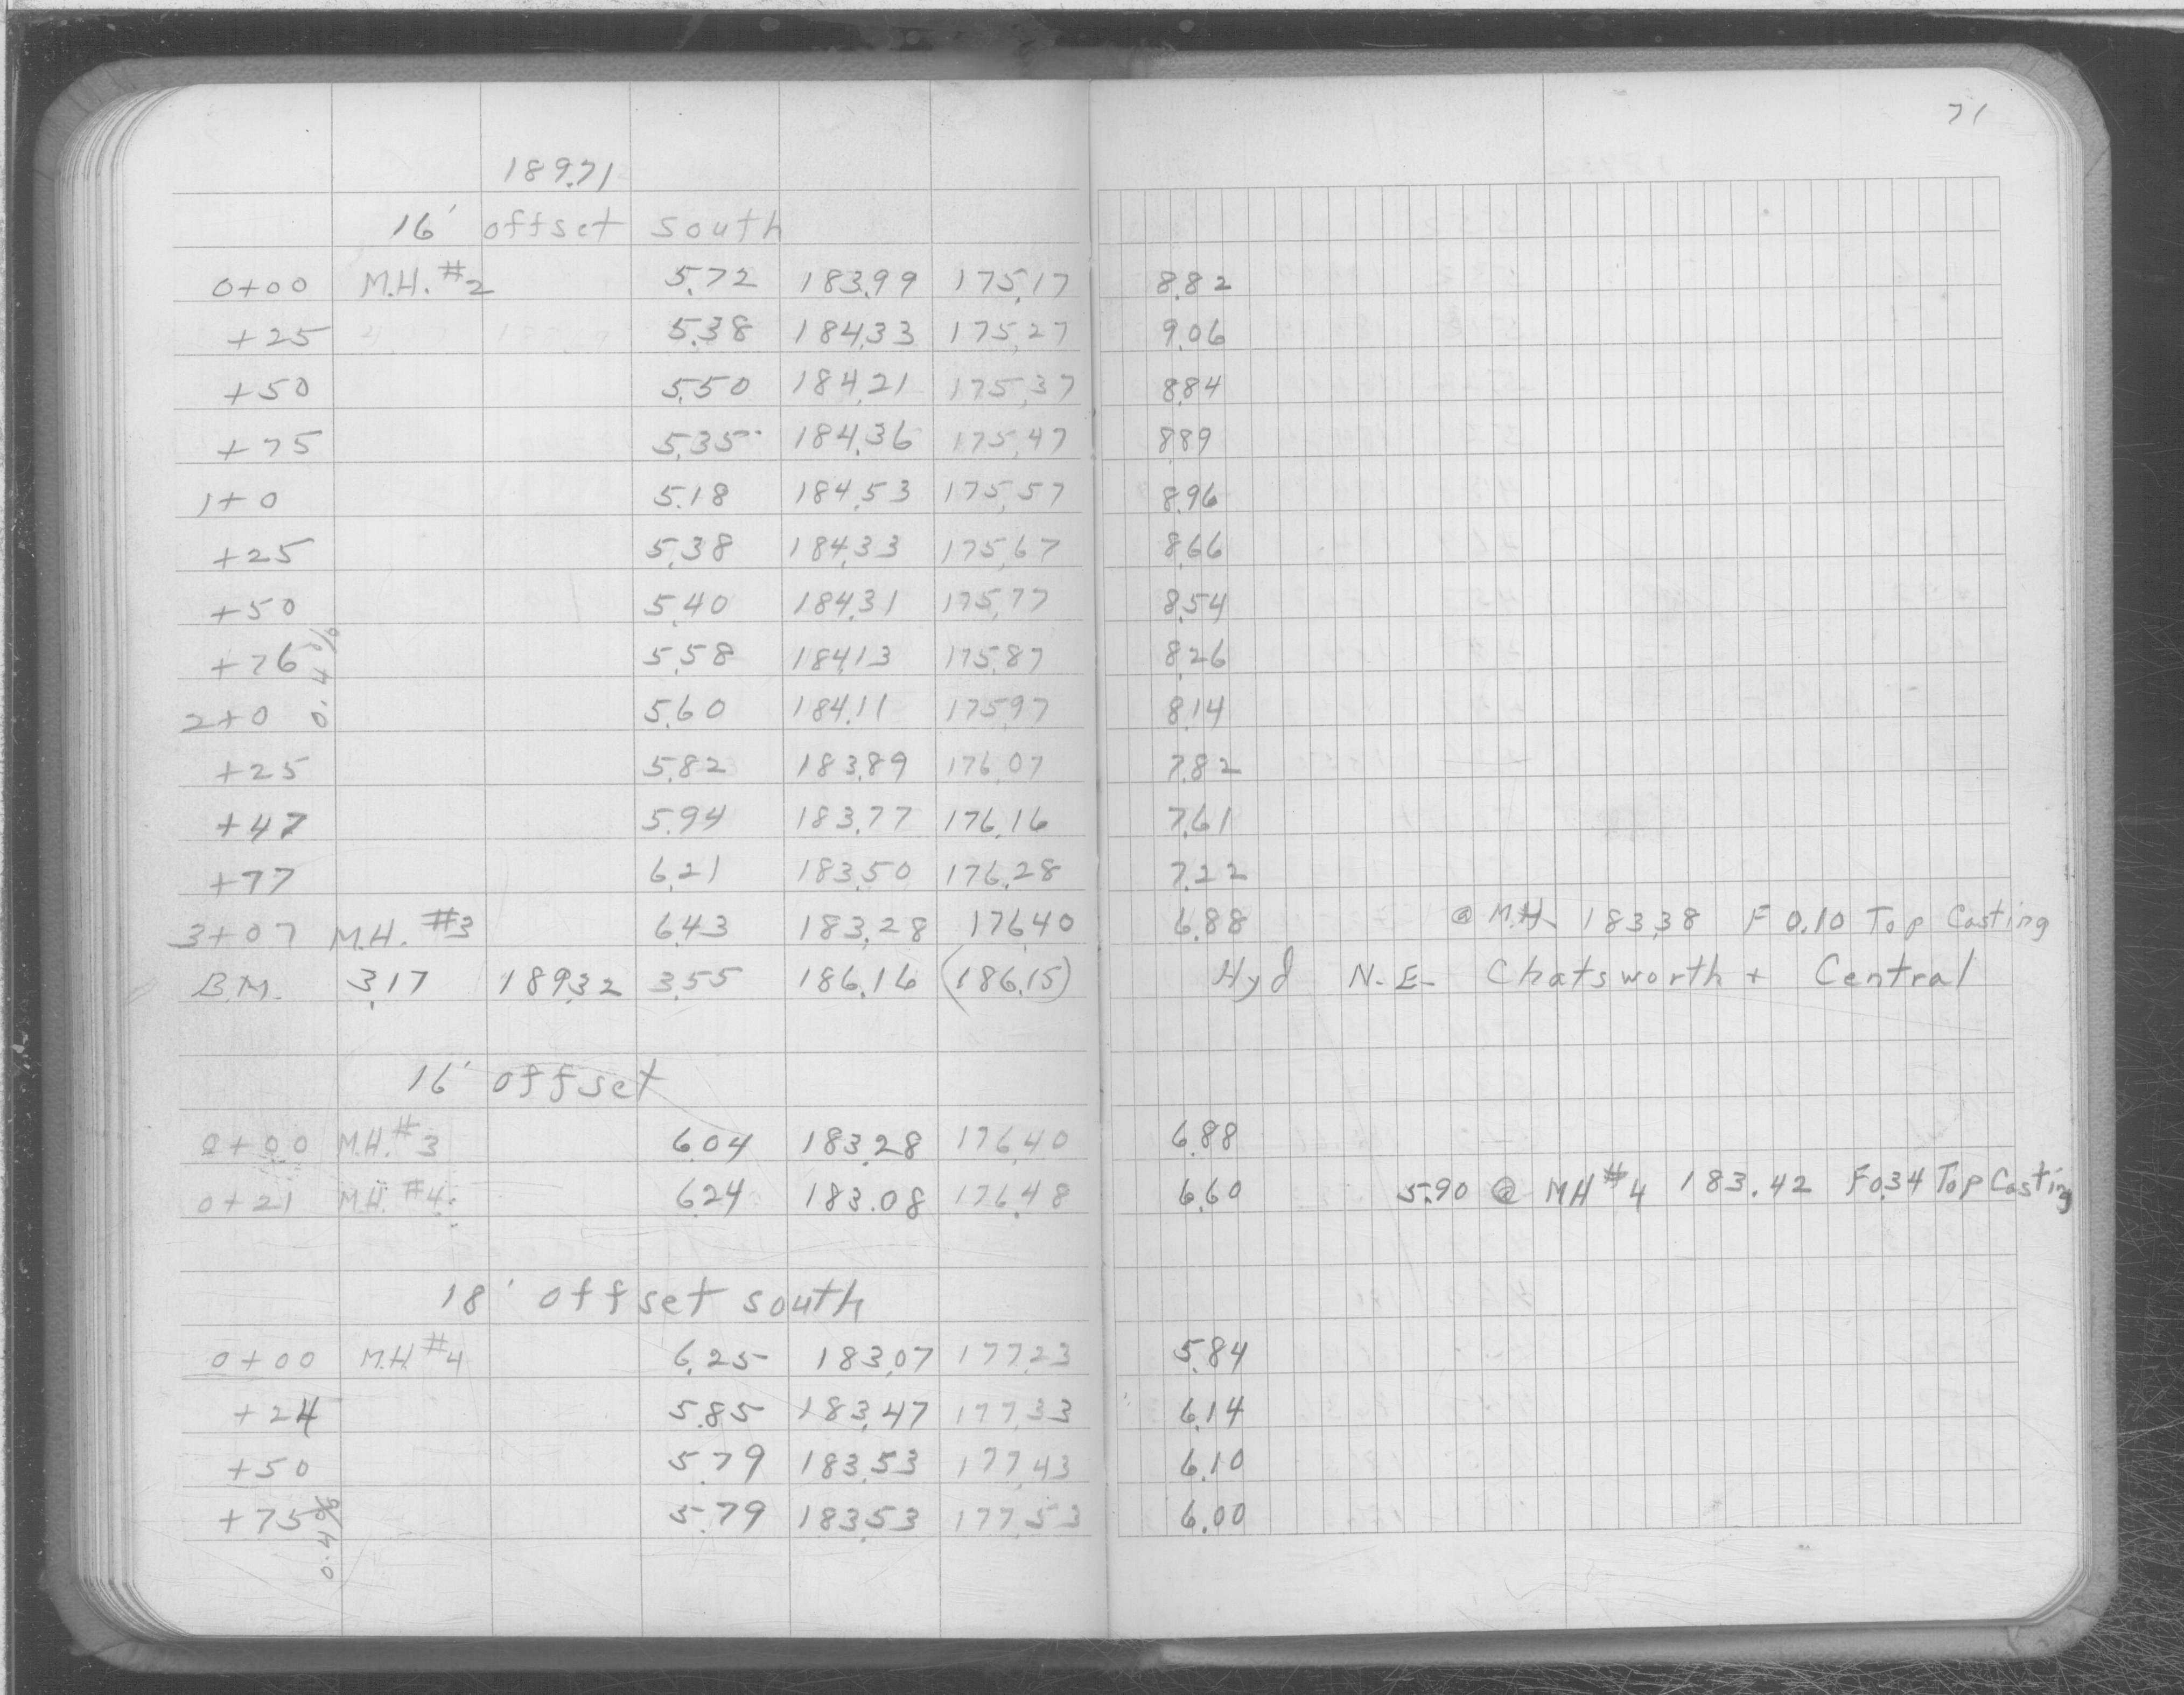 71
189.71
16' offset south
0+00 M.H. #2 5.72 183.99 175.17 8.82
+25 5.38 184.33 175.27 9.06
+50 5.50 184.21 175.37 8.84
+75 5.35 184.36 175.47 8.89
1+0 5.18 184.53 175.57 8.96
+25 5.38 184.33 175.67 8.66
+50 5.40 184.31 175.77 8.54
+76 5.58 184.13 175.87 8.26
0.4%
2+0 5.60 184.11 175.97 8.14
+25 5.82 183.89 176.07 7.82
+47 5.94 183.77 176.16 7.61
+77 6.21 183.50 176.28 7.22
3+07 M.H. #3 6.43 183.28 176.40 6.88 @ M.H. 183.38 F 0.10 Top Casting
B.M. 3.17 189.32 3.55 186.16 (186.15) Hyd N.E. Chatsworth + Central
16' offset
0+00 M.H. #3 6.04 183.28 176.40 6.88
0+21 M.H. #4 6.24 183.08 176.48 6.60 5.90 @ MH #4 183.42 F 0.34 Top Casting
18' offset south
0+00 M.H. #4 6.25 183.07 177.23 5.84
+24 5.85 183.47 177.33 6.14
+50 5.79 183.53 177.43 6.10
+75 5.79 183.53 177.53 6.00
0.4%